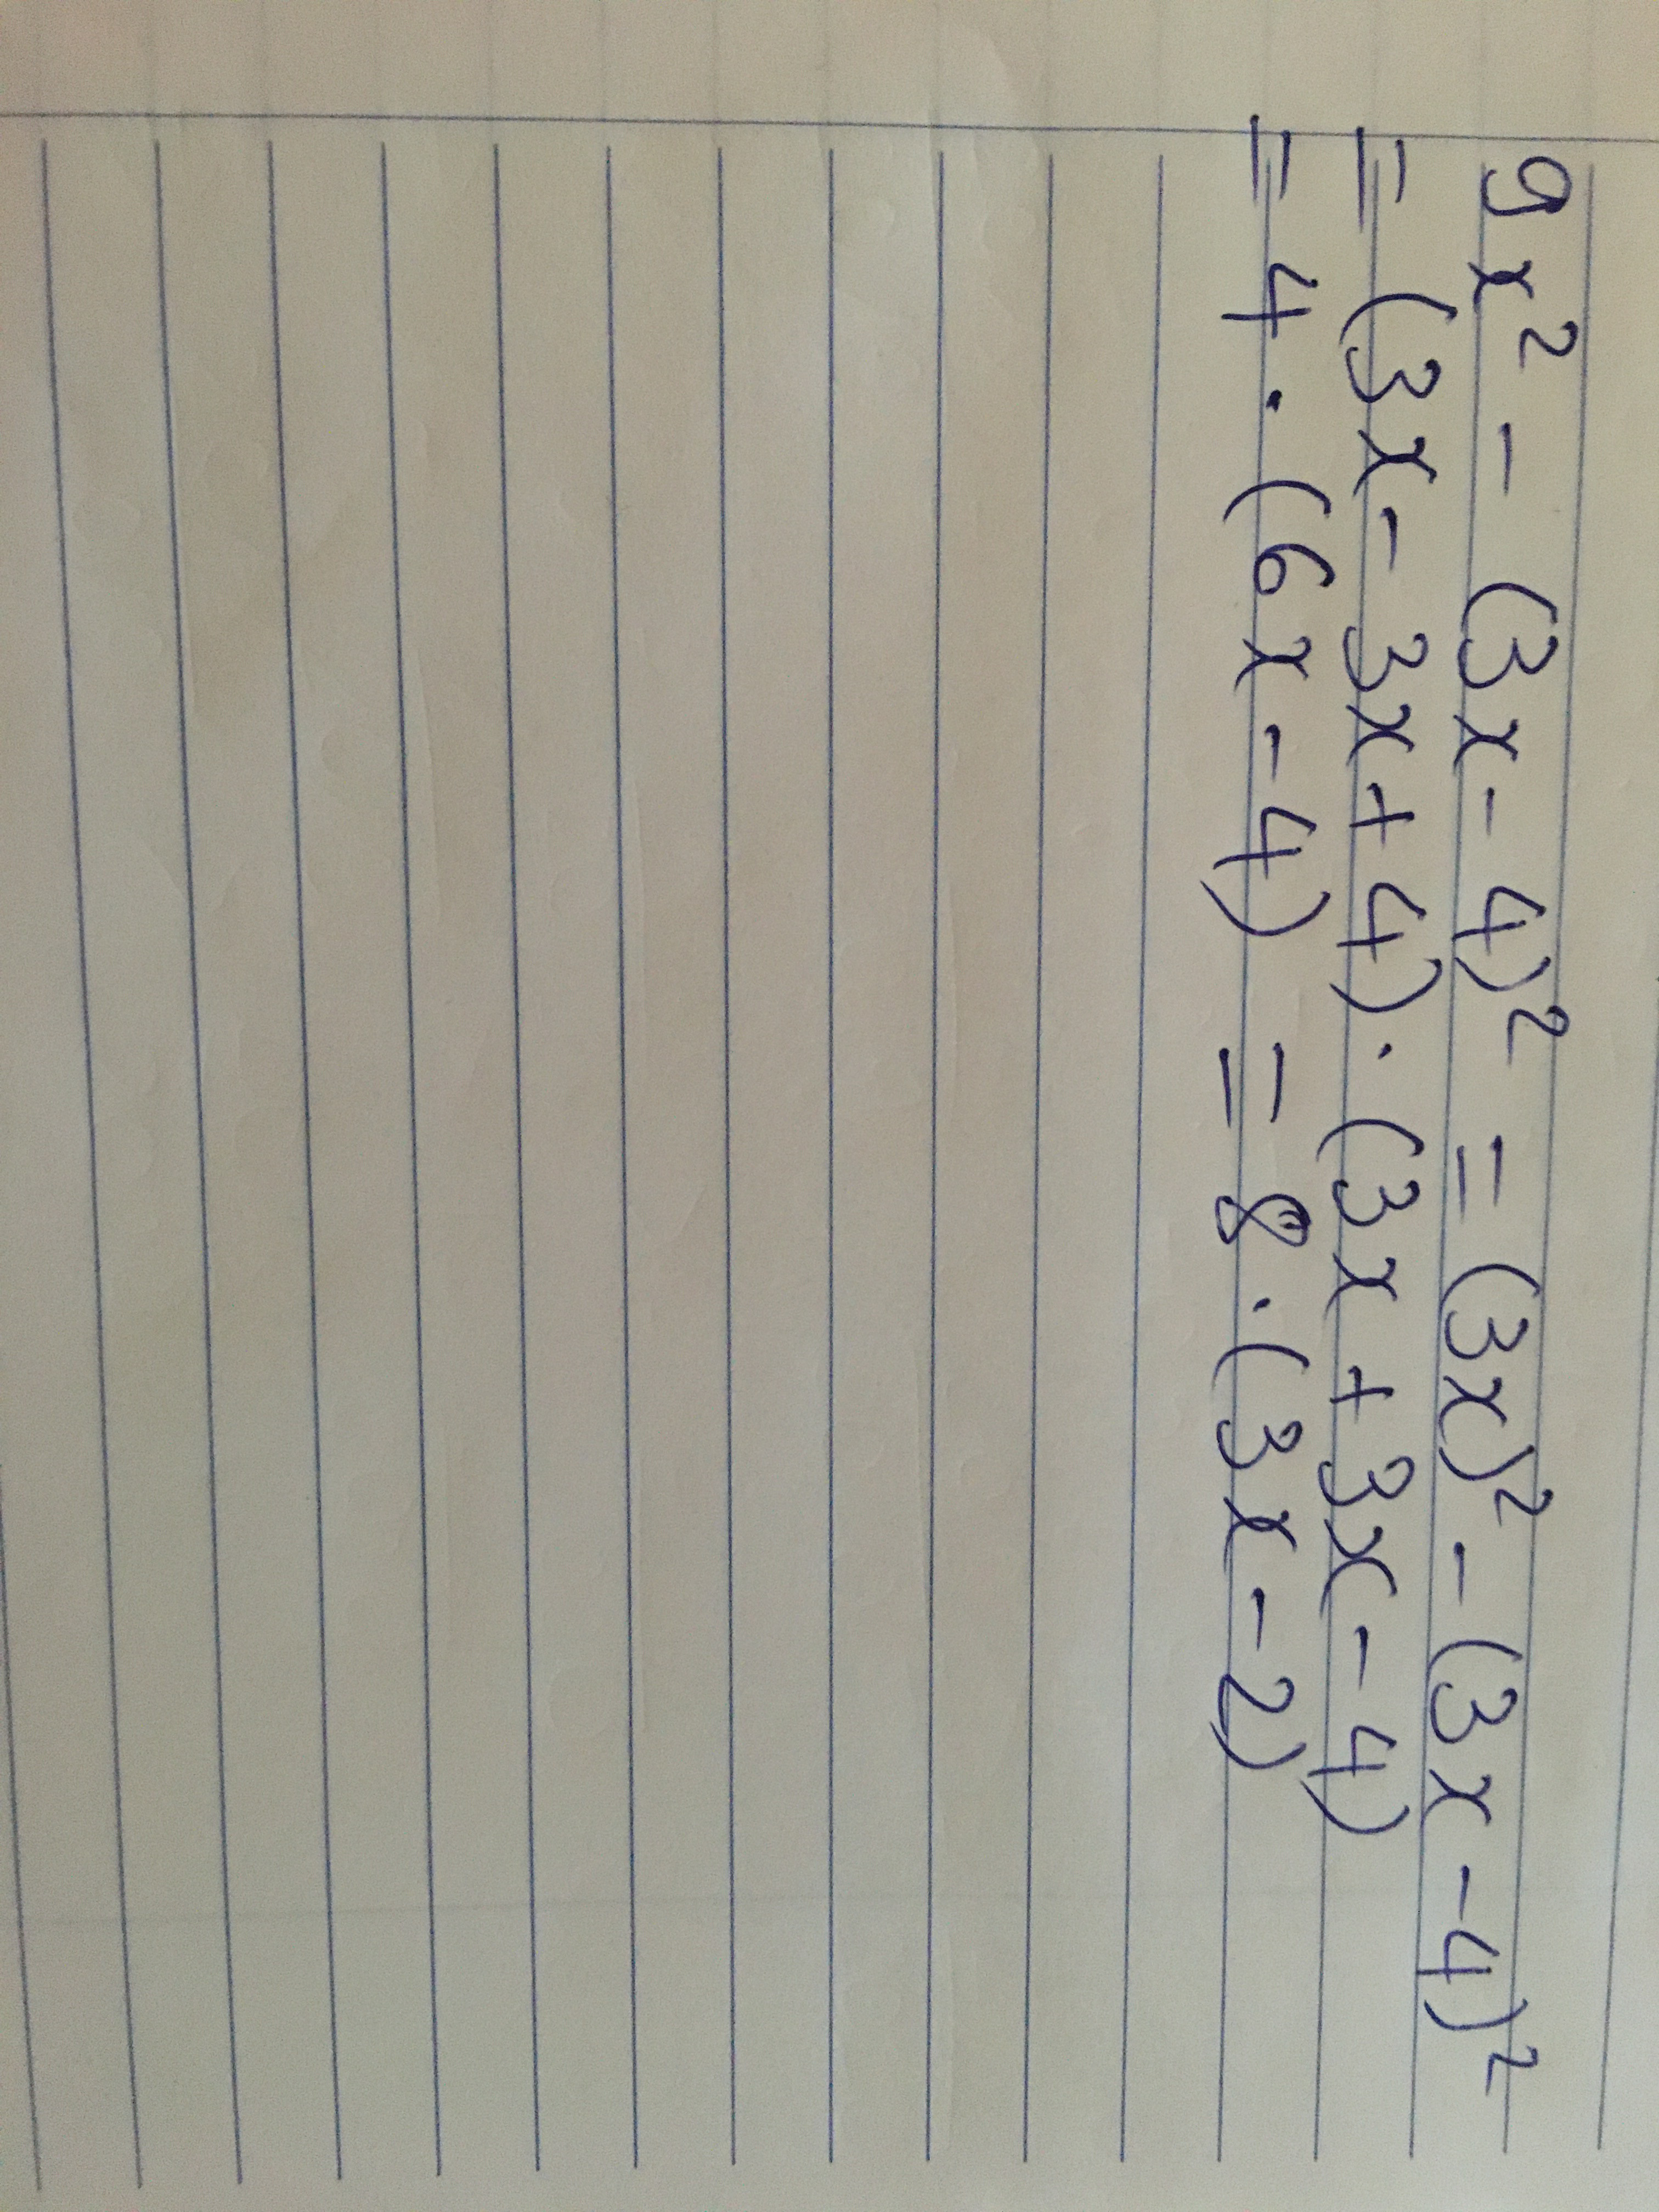 9x² - (3x - 4)² = (3x)² - (3x - 4)²
= (3x - 3x + 4) · (3x + 3x - 4)
= 4 · (6x - 4) = 8 · (3x - 2)